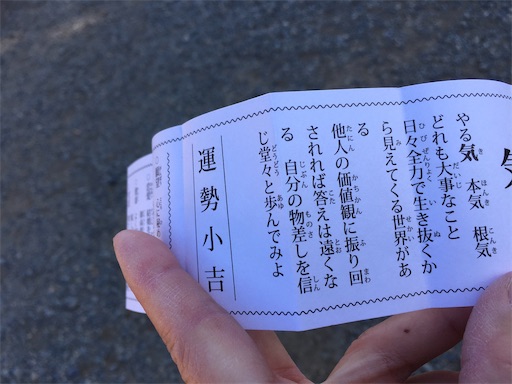 やる気　本気　根気
どれも大事なこと
日々全力で生き抜くか
ら見えてくる世界があ
る
他人の価値観に振り回
されれば答えは遠くな
る　自分の物差しを信
じ堂々と歩んでみよ
運勢小吉